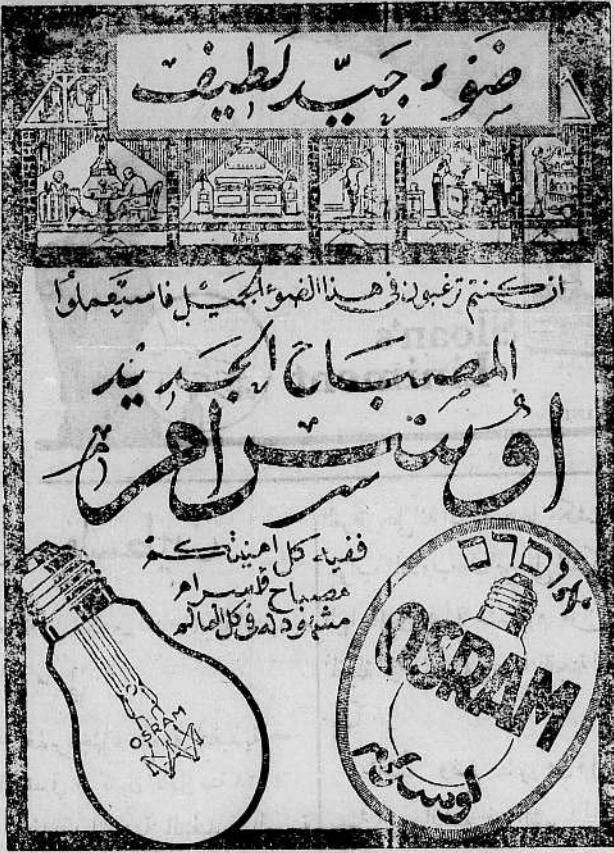 ضوء جيّد لطيف
ان كنتم ترغبون في هذا الضوء الجميل فاستعملوا
المصباح الجديد
اوسرام
ففيه كل امنيتكم
مصباح اوسرام
مشهود له في كل العالم
OSRAM
OSRAM
اوسرام